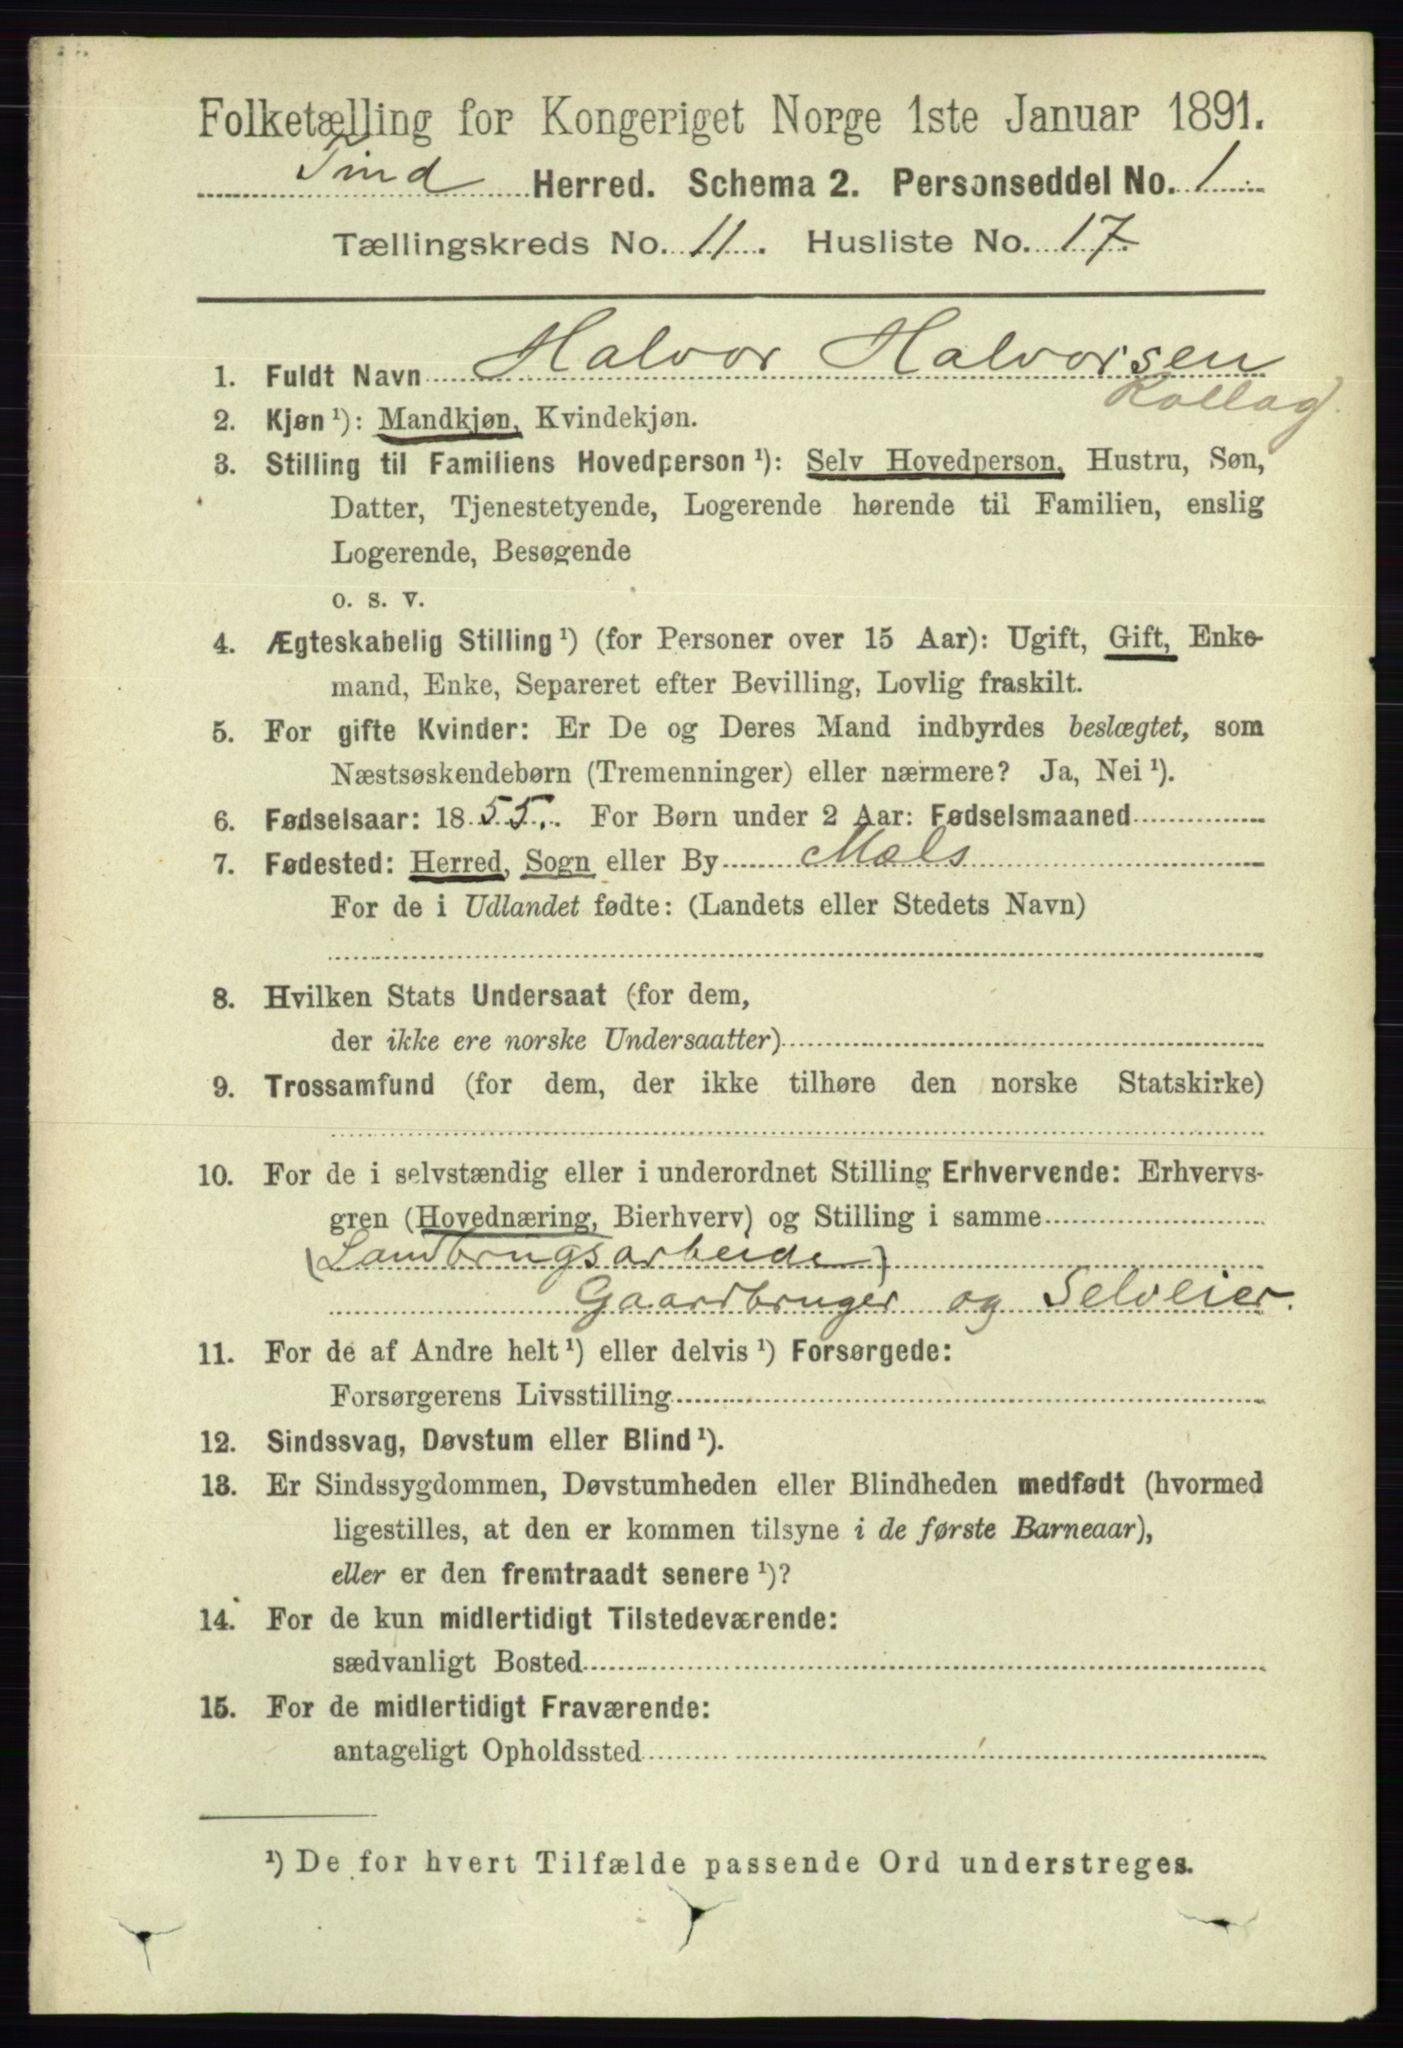 Folketælling for Kongeriget Norge 1ste Januar 1891.
Tind Herred. Schema 2. Personseddel No. 1
Tællingskreds No. 11. Husliste No. 17
1. Fuldt Navn Halvor Halvorsen
Kollag
2. Kjøn ¹): Mandkjøn, Kvindekjøn.
3. Stilling til Familiens Hovedperson ¹): Selv Hovedperson, Hustru, Søn,
Datter, Tjenestetyende, Logerende hørende til Familien, enslig
Logerende, Besøgende
o. s. v.
4. Ægteskabelig Stilling ¹) (for Personer over 15 Aar): Ugift, Gift, Enke-
mand, Enke, Separeret efter Bevilling, Lovlig fraskilt.
5. For gifte Kvinder: Er De og Deres Mand indbyrdes beslægtet, som
Næstsøskendebørn (Tremenninger) eller nærmere? Ja, Nei ¹).
6. Fødselsaar: 1855. For Børn under 2 Aar: Fødselsmaaned
7. Fødested: Herred, Sogn eller By Mæls
For de i Udlandet fødte: (Landets eller Stedets Navn)
8. Hvilken Stats Undersaat (for dem,
der ikke ere norske Undersaatter)
9. Trossamfund (for dem, der ikke tilhøre den norske Statskirke)
10. For de i selvstændig eller i underordnet Stilling Erhvervende: Erhvervs-
gren (Hovednæring, Bierhverv) og Stilling i samme
(Landbrugsarbeide)
Gaardbruger og Selveier.
11. For de af Andre helt ¹) eller delvis ¹) Forsørgede:
Forsørgerens Livsstilling
12. Sindssvag, Døvstum eller Blind ¹).
13. Er Sindssygdommen, Døvstumheden eller Blindheden medfødt (hvormed
ligestilles, at den er kommen tilsyne i de første Barneaar),
eller er den fremtraadt senere ¹)?
14. For de kun midlertidigt Tilstedeværende:
sædvanligt Bosted
15. For de midlertidigt Fraværende:
antageligt Opholdssted
¹) De for hvert Tilfælde passende Ord understreges.